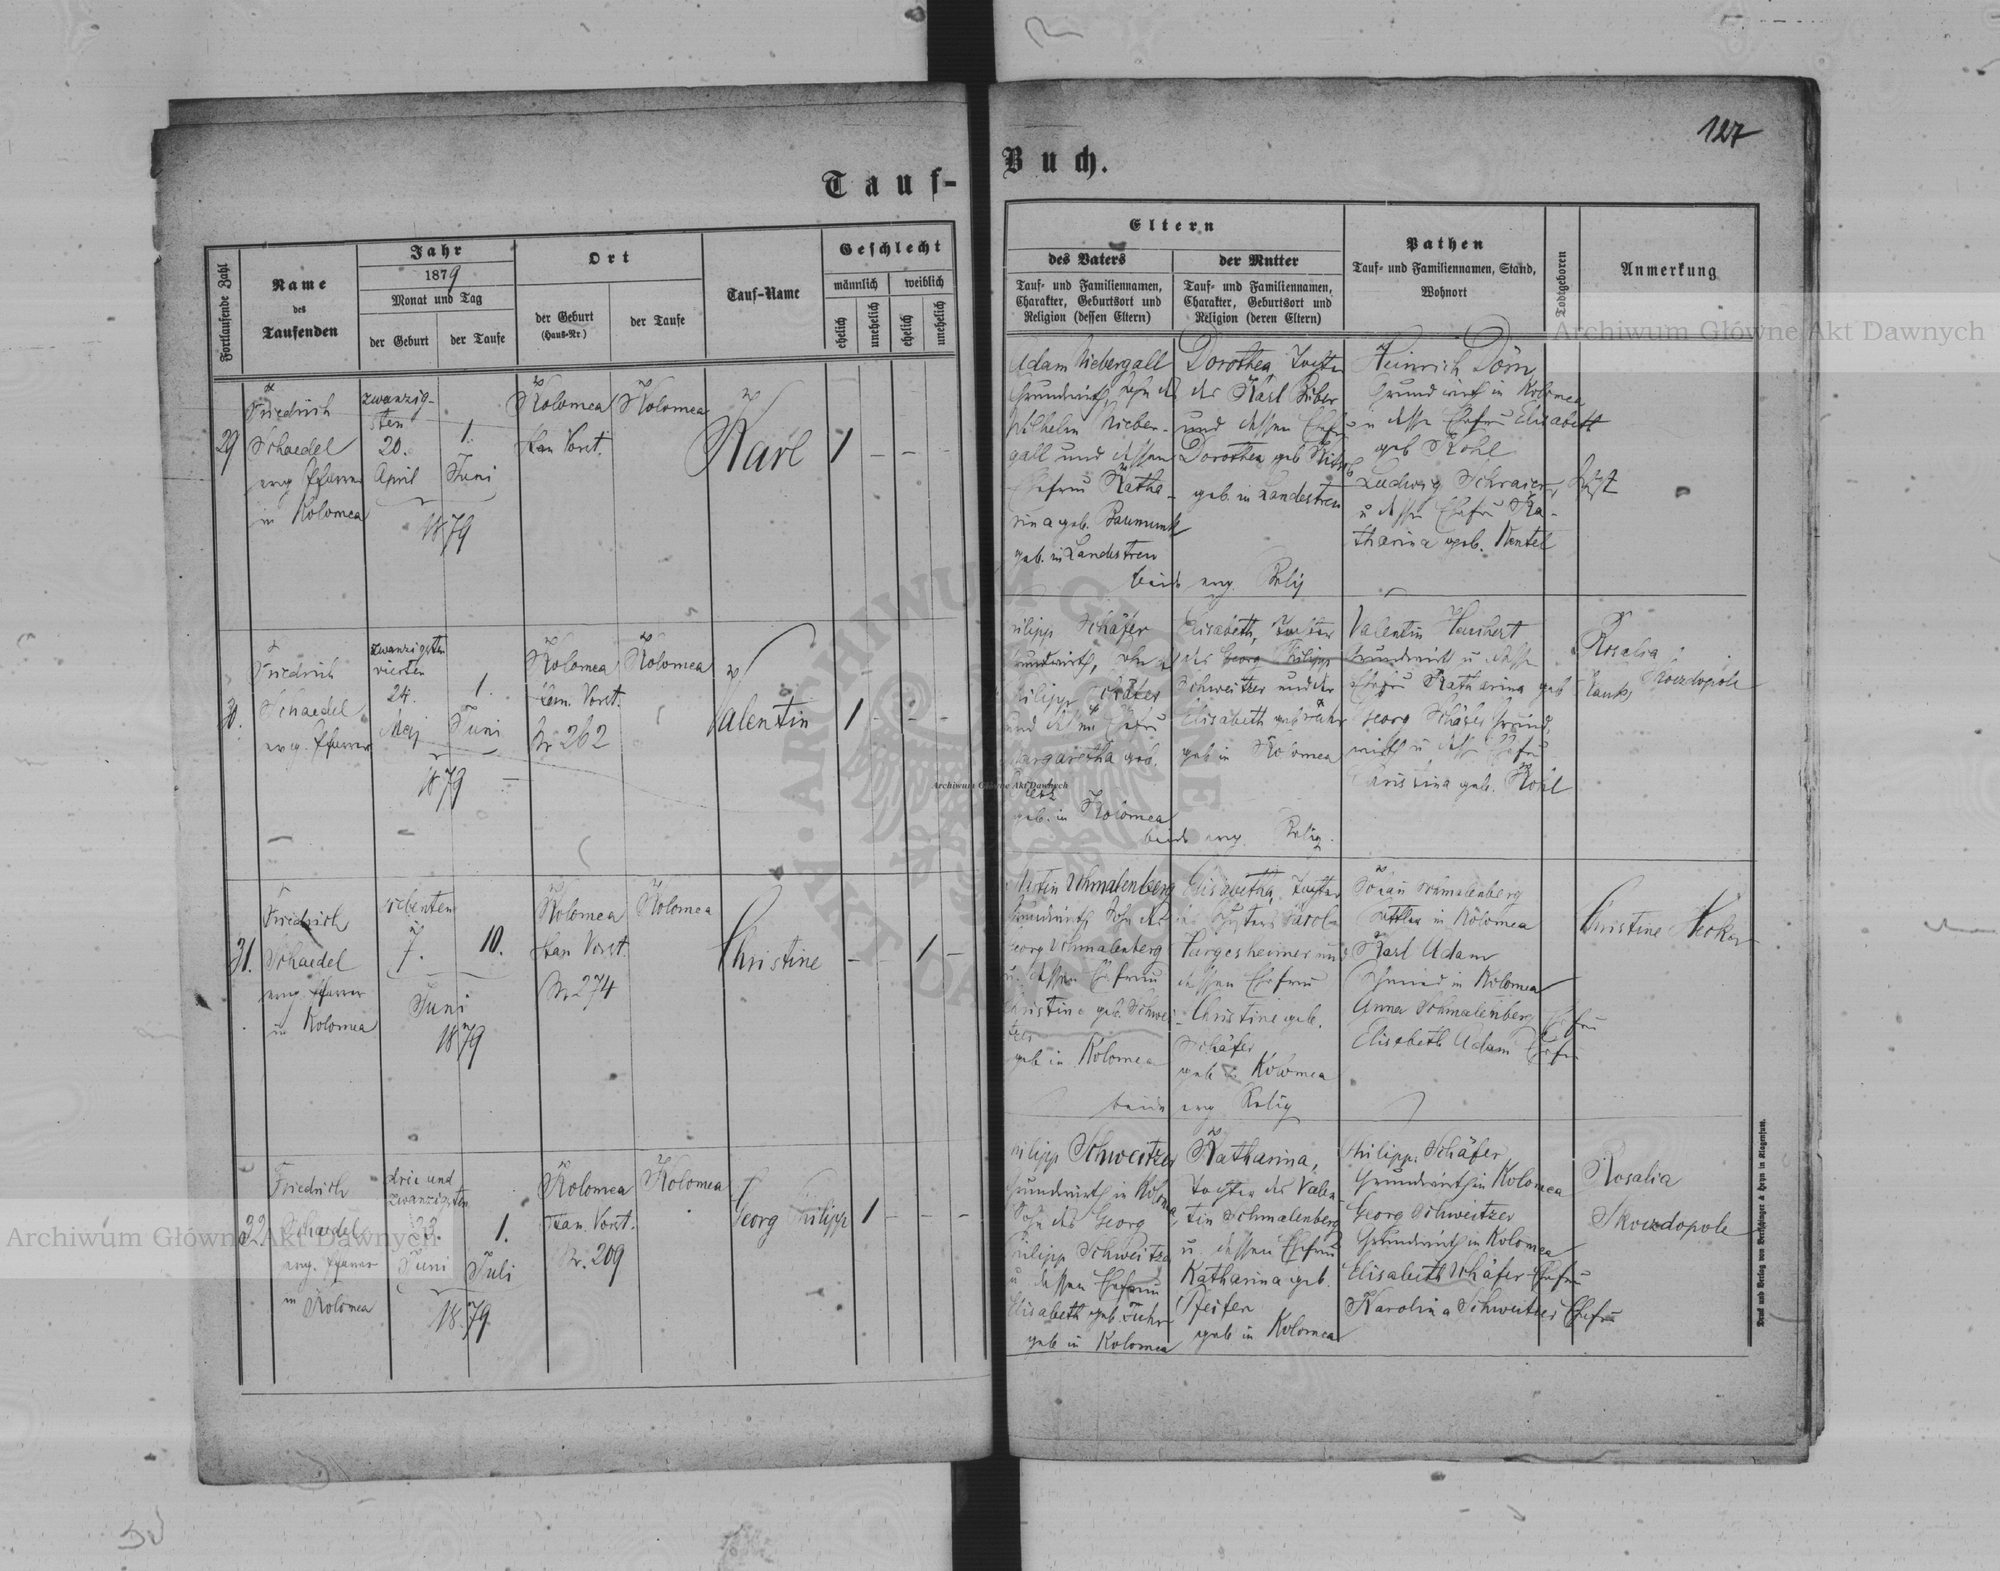 127
Tauf-Buch.
Fortlaufende Zahl
Name
des
Taufenden
Jahr
1879
Monat und Tag
der Geburt
der Taufe
Ort
der Geburt
(Haus-Nr.)
der Taufe
Tauf-Name
Geschlecht
männlich
weiblich
ehelich
unehelich
ehelich
unehelich
Eltern
des Vaters
Tauf- und Familiennamen,
Charakter, Geburtsort und
Religion (dessen Eltern)
der Mutter
Tauf- und Familiennamen,
Charakter, Geburtsort und
Religion (deren Eltern)
Pathen
Tauf- und Familiennamen, Stand,
Wohnort
Todtgeboren
Anmerkung
29
Friedrich
Schaedel
evg. Pfarrer
in Kolomea
zwanzig-
sten
20.
April
1.
Juni
1879
Kolomea
Stan. Vorst.
Kolomea
Karl
1
Adam Niebergall
Grundwirth, Sohn des
Wilhelm Nieber-
gall und dessen
Ehefrau Katha-
rina geb.
geb. in Landestreu
Dorothea, Tochter
des Karl
und dessen Ehefrau
Dorothea geb.
geb. in Landestreu
beide evg. Relig
Heinrich Dörn
Grundwirth in Kolomea
u dessen Ehefrau Elisabeth
geb Kohl
Ludwig
u dessen Ehefrau Ka-
tharina geb.
30.
Friedrich
Schaedel
evg. Pfarrer
zwanzigsten
vierten
24.
Mai
1.
Juni
1879
Kolomea
Vorst.
Nr 262
Kolomea
Valentin
1
Philipp Schäfer
Grundwirth, Sohn des
Philipp Schäfer
und dessen Ehefrau
Margaretha geb.
geb. in Kolomea
Elisabeth, Tochter
des Georg Philipp
Schweitzer und der
Elisabeth geb Fuhr
geb in Kolomea
beide evg. Relig.
Valentin
Grundwirth u dessen
Ehefrau Katharina geb
Georg Schäfer Grund-
wirth u dessen Ehefrau
Christina geb. Kohl
Rosalia
Skoezdopole
31.
Friedrich
Schaedel
evg. Pfarrer
in Kolomea
siebenten
7.
10.
Juni
1879
Kolomea
Stan. Vorst.
Nr 274
Kolomea
Christine
1
Martin Schmalenberg
Grundwirth Sohn des
Georg Schmalenberg
u. dessen Ehefrau
Christine geb. Schwei-
tzer
geb in Kolomea
Elisabetha, Tochter
Hargesheimer und
dessen Ehefrau
Christine geb.
Schäfer
geb in Kolomea
beide evg Relig
Johann Schmalenberg
Sattler in Kolomea
Karl Adam
Schmied in Kolomea
Anna Schmalenberg Ehefrau
Elisabeth Adam Ehefrau
Christine
32.
Friedrich
Schaedel
evg. Pfarrer
in Kolomea
drei und
zwanzigsten
23.
Juni
1.
Juli
1879
Kolomea
Stan. Vorst.
Nr. 209
Kolomea
Georg Philipp
1
Philipp Schweitzer
Grundwirth in Kolomea,
Sohn des Georg
Philipp Schweitzer
u dessen Ehefrau
Elisabeth geb. Fuhr
geb in Kolomea
Katharina,
Tochter des Valen-
tin Schmalenberg
u. dessen Ehefrau
Katharina geb.
Pfeifer
geb in Kolomea
Philipp Schäfer
Grundwirth in Kolomea
Georg Schweitzer
Grundwirth in Kolomea
Elisabeth Schäfer Ehefrau
Karolina Schweitzer Ehefrau
Rosalia
Skoezdopole
Archiwum Główne Akt Dawnych
Archiwum Główne Akt Dawnych
Archiwum Główne Akt Dawnych